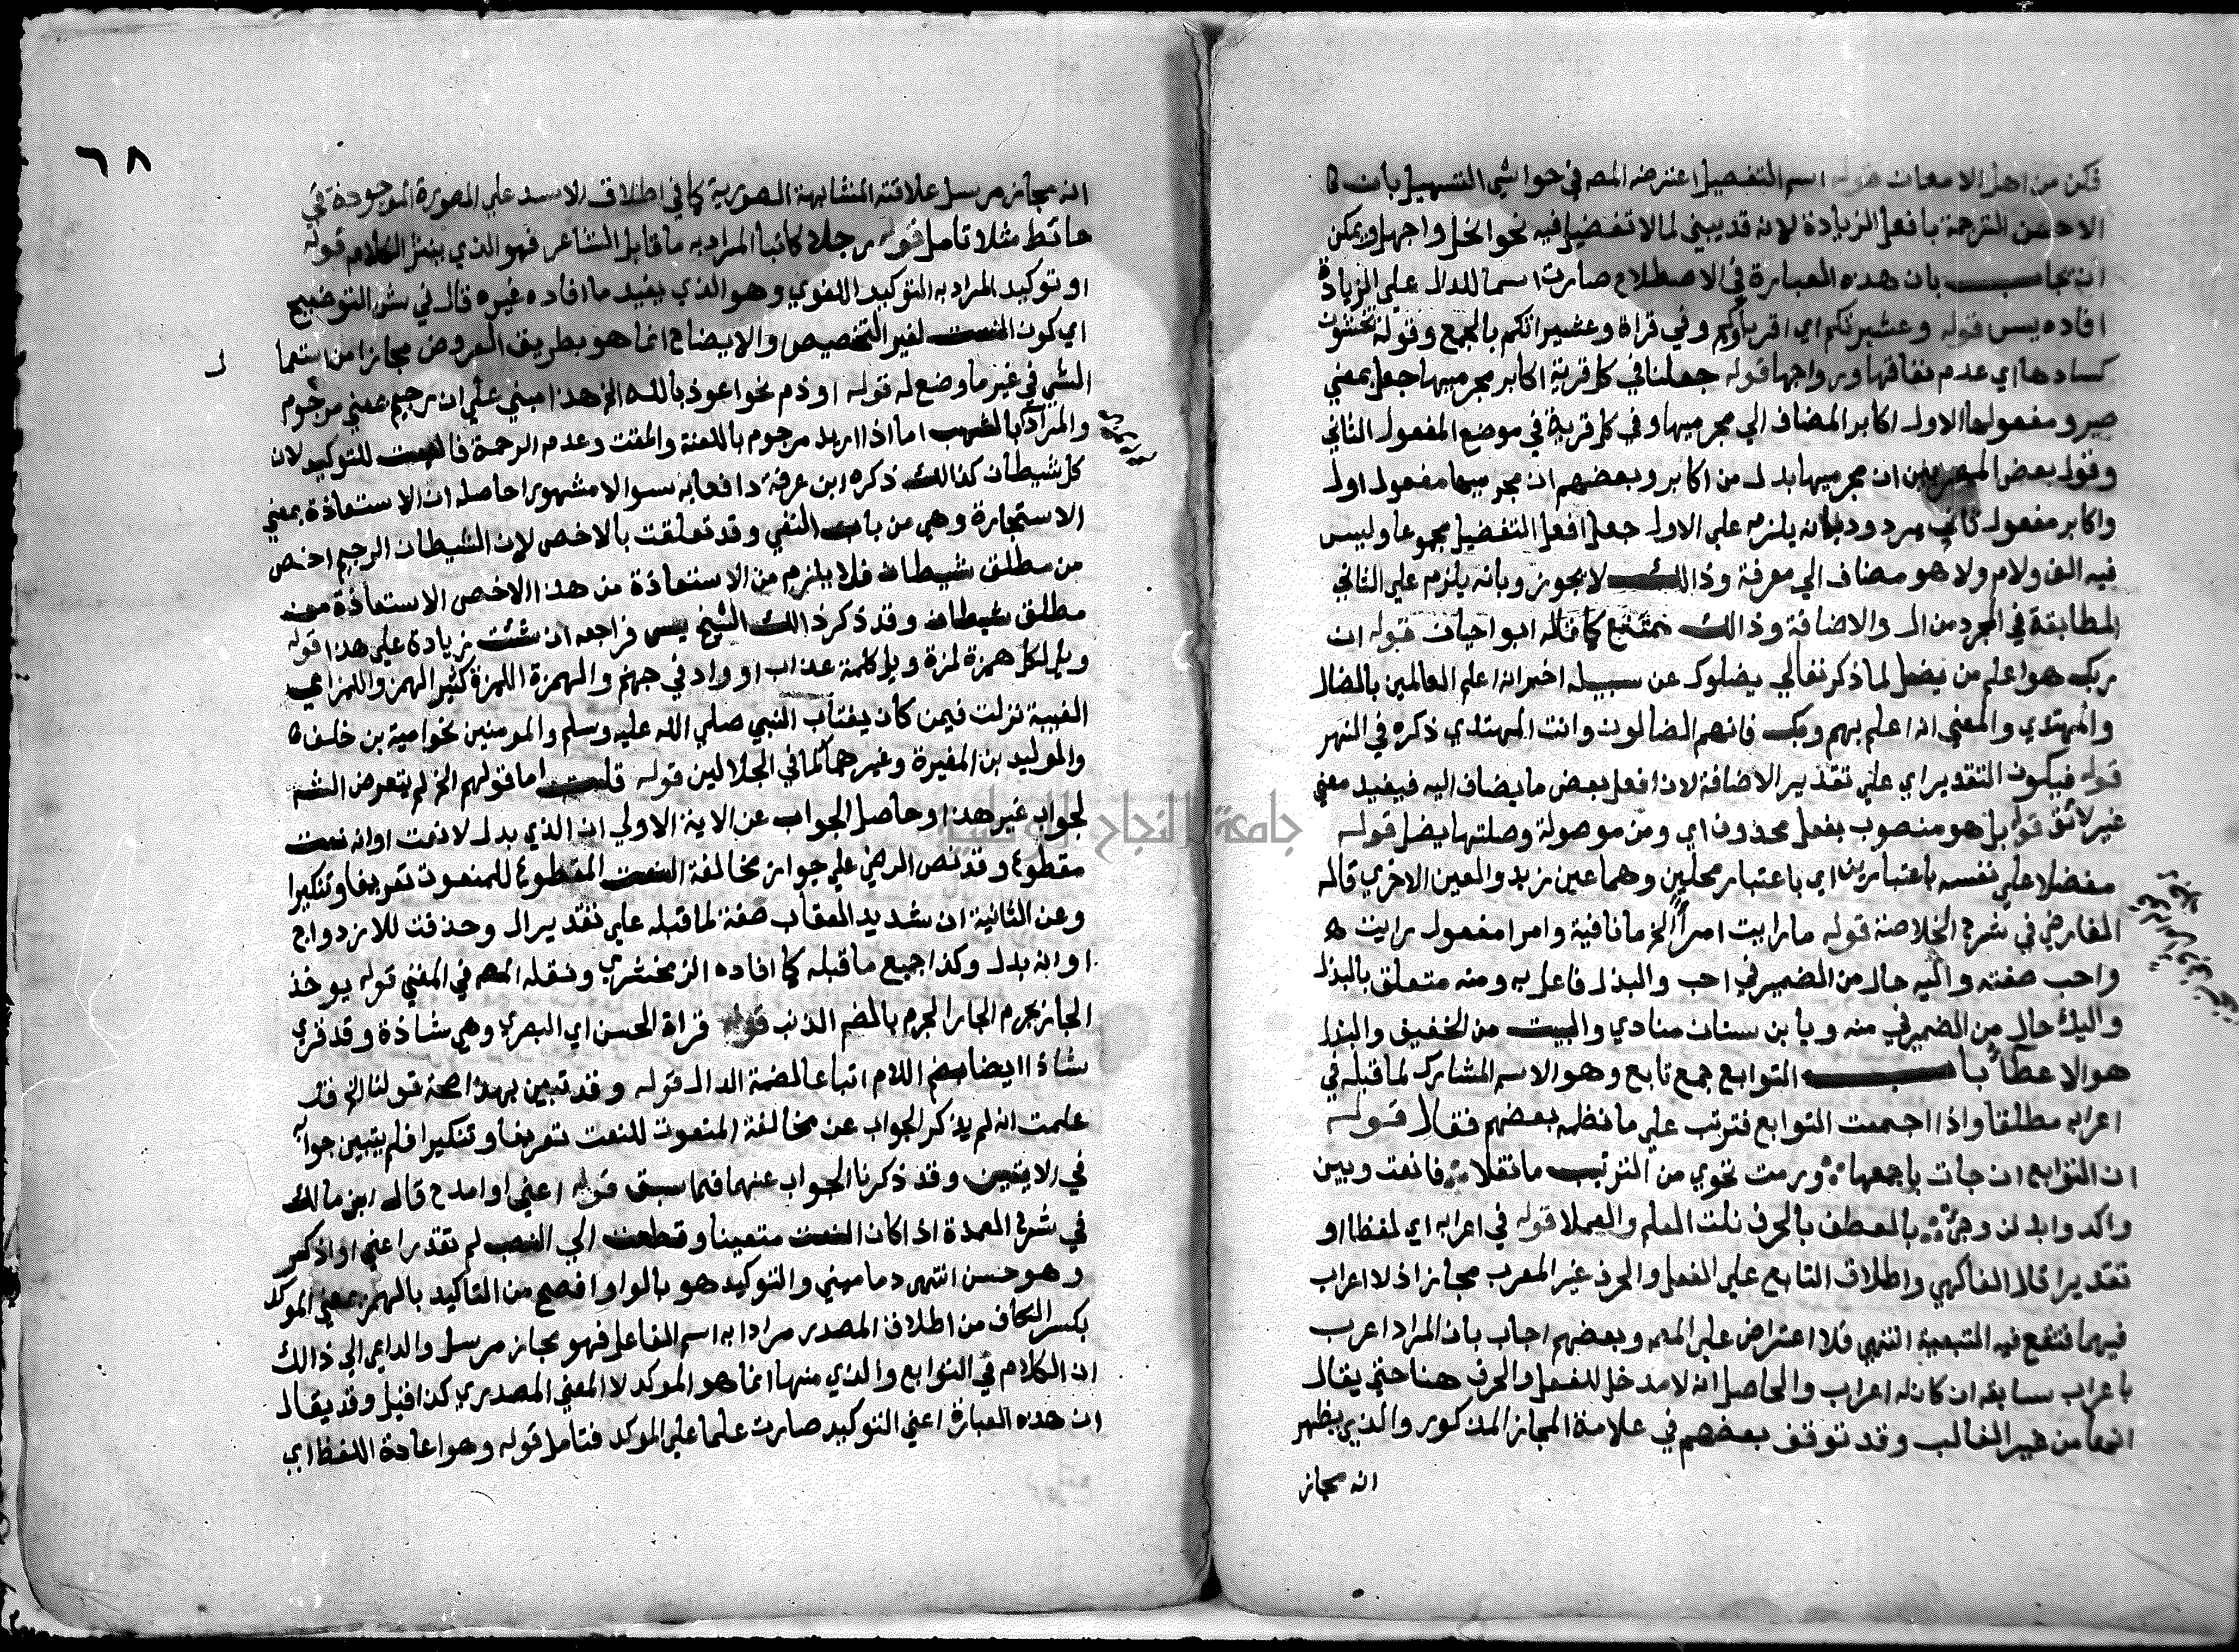 فكن من اهل الامعان قوله اسم التفضيل اعترضه المصه في حواشي التسهيل بان كا
الاحسن الترجمة بافعل الزيادة لانه قد يبني لما لا تفضيل فيه نحو ابخل واجهل ويمكن
ان يجاب بان هذه العبارة في الاصطلاح صارت اسما للدال علي الزيادة
افاده يس قوله وعشيرتكم اي اقرباؤكم وفي قراة وعشيراتكم بالجمع وقوله تخشون
كسادها اي عدم نفاقها ورواجها قوله جعلنا في كل قرية اكابر مجرميها جعل بمعني
صير ومفعولها الاول اكابر المضاف الي مجرميها وفي كل قرية في موضع المفعول الثاني
وقول بعض المعربين ان مجرميها بدل من اكابر وبعضهم ان مجرميها مفعول اول
واكابر مفعول ثاني مردود بانه يلزم علي الاول جعل افعل التفضيل مجموعا وليس
فيه الف ولام ولا هو مضاف الي معرفة وذالك لا يجوز وبانه يلزم علي الثاني
المطابقة في المجرد من ال والاضافة وذالك ممتنع كما قاله ابو احيان قوله ان
ربك هو اعلم من يضل لما ذكر تعالي يضلوك عن سبيله اخبر انه اعلم العالمين بالضال
والمهتدي والمعني انه اعلم بهم وبك فانهم الضالون وانت المهتدي ذكره في النهر
قوله فيكون التقدير اي علي تقدير الاضافة لان افعل بعض ما يضاف اليه فيفيد معني
غير لائق قوله بل هو منصوب بفعل محذوف اي ومن موصولة وصلتها يضل قوله
مفضلا علي نفسه باعتبارين اي باعتبار محلين وهما عين زيد والعين الاخري قاله
الفارضي في شرح الخلاصة قوله ما رايت امرأ الخ ما نافية وامرا مفعول رايت
واحب صفته واليه حال من الضمير في احب والبذل فاعل به ومنه متعلق بالبذل
واليك حال من الضمير في منه ويا بن سنان منادي والبيت من الخفيف والبذل
هو الاعطآ باب التوابع جمع تابع وهو الاسم المشارك لما قبله في
اعرابه مطلقا واذا اجتمعت التوابع فترتب علي ما نظمه بعضهم فقال قوله
ان التوابع ان جات باجمعها ورمت تحوي من الترتيب ما نقلا فانعت وبين
واكد وابدلن وجئ بالعطف بالحرف نلت العلم والعملا قوله في اعرابه اي لفظا او
تقديرا قال الفاكهي واطلاق التابع علي الفعل والحرف غير المعرب مجاز اذ لا اعراب
فيهما فتقع فيه التبعية انتهي فلا اعتراض علي المصه وبعضهم اجاب بان المراد اعرب
باعراب سابقه ان كان له اعراب والحاصل انه لا مدخل للفعل والحرف هنا حتي يقال
انهما من غير الغالب وقد توقف بعضهم في علامة المجاز المذكور والذي يظهر
انه مجاز
٦٨
انه مجاز مرسل علاقته المشابهة الصورية كما في اطلاق الاسد علي الصورة الموجودة في
حائط مثلا تامل قوله رجلا كاتبا المراد به ما قابل الشاعر فهو الذي ينثر الكلام قوله
او توكيد المراد به التوكيد اللغوي وهو الذي يفيد ما افاده غيره قال في ش التوضيح
اي كون النعت لغير التخصيص والايضاح انما هو بطريق العروض مجازا من استعما
ل
الشي في غير ما وضع له قوله او ذم نحو اعوذ بالله الخ هذا مبني علي ان رجيم بمعني مرجوم
والمراد بالشهب اما اذا اريد مرجوم باللعنة والمقت وعدم الرحمة فالنعت للتوكيد لان
كل شيطان كذالك ذكره ابن عرفة دافعا به سوالا مشهورا حاصله ان الاستعاذة بمعني
الاستجارة وهي من باب النفي وقد تعلقت بالاخص لان الشيطان الرجيم اخص
من مطلق شيطان فلا يلزم من الاستعاذة من هذا الاخص الاستعاذة من
مطلق شيطان وقد ذكر ذالك الشيخ يس فراجعه ان شئت زيادة علي هذا قوله
ويل لكل همزة لمزة ويل كلمة عذاب او واد في جهنم والهمزة اللمزة كثير الهمز واللمز اي
الغيبة نزلت فيمن كان يغتاب النبي صلي الله عليه وسلم والمومنين نحو امية بن خلف
والوليد بن المغيرة وغيرهما كما في الجلالين قوله قلت اما قولهم الخ لم يتعرض الشه
لجواب غير هذا وحاصل الجواب عن الاية الاولي ان الذي بدل لا نعت او انه نعت
مقطوع وقد نص الرضي علي جواز مخالفة النعت المقطوع للمنعوت تعريفا وتنكيرا
وعن الثانية ان شديد العقاب صفة لما قبله علي تقدير ال وحذفت للازدواج
او انه بدل وكذا جميع ما قبله كما افاده الزمخشري ونقله المصه في المغني قوله يوخذ
الجار بجرم الجار الجرم بالضم الذنب قوله قراة الحسن اي البصري وهي شاذة وقد قري
شاذا ايضا بضم اللام اتباعا لضمة الدال قوله وقد تبين بهذا صحة قولنا الخ قد
علمت انه لم يذكر الجواب عن مخالفة المنعوت للنعت تعريفا وتنكيرا فلم يتبين جوا
في الايتين وقد ذكرنا الجواب عنهما فيما سبق قوله اعني او امدح قال ابن مالك
في شرح العمدة اذا كان النعت متعينا وقطعت الي النصب لم تقدر اعني او اذكر
وهو حسن انتهي دماميني والتوكيد هو بالواو افصح من التاكيد بالهمز بمعني الموكد
بكسر الكاف من اطلاق المصدر مرادا به اسم الفاعل فهو مجاز مرسل والداعي الي ذالك
ان الكلام في التوابع والذي منها انما هو الموكد لا المعني المصدري كذا قيل وقد يقال
ان هذه العبارة اعني التوكيد صارت علما علي الموكد فتامل قوله وهو اعادة اللفظ اي
جامعة النجاح الوطنية